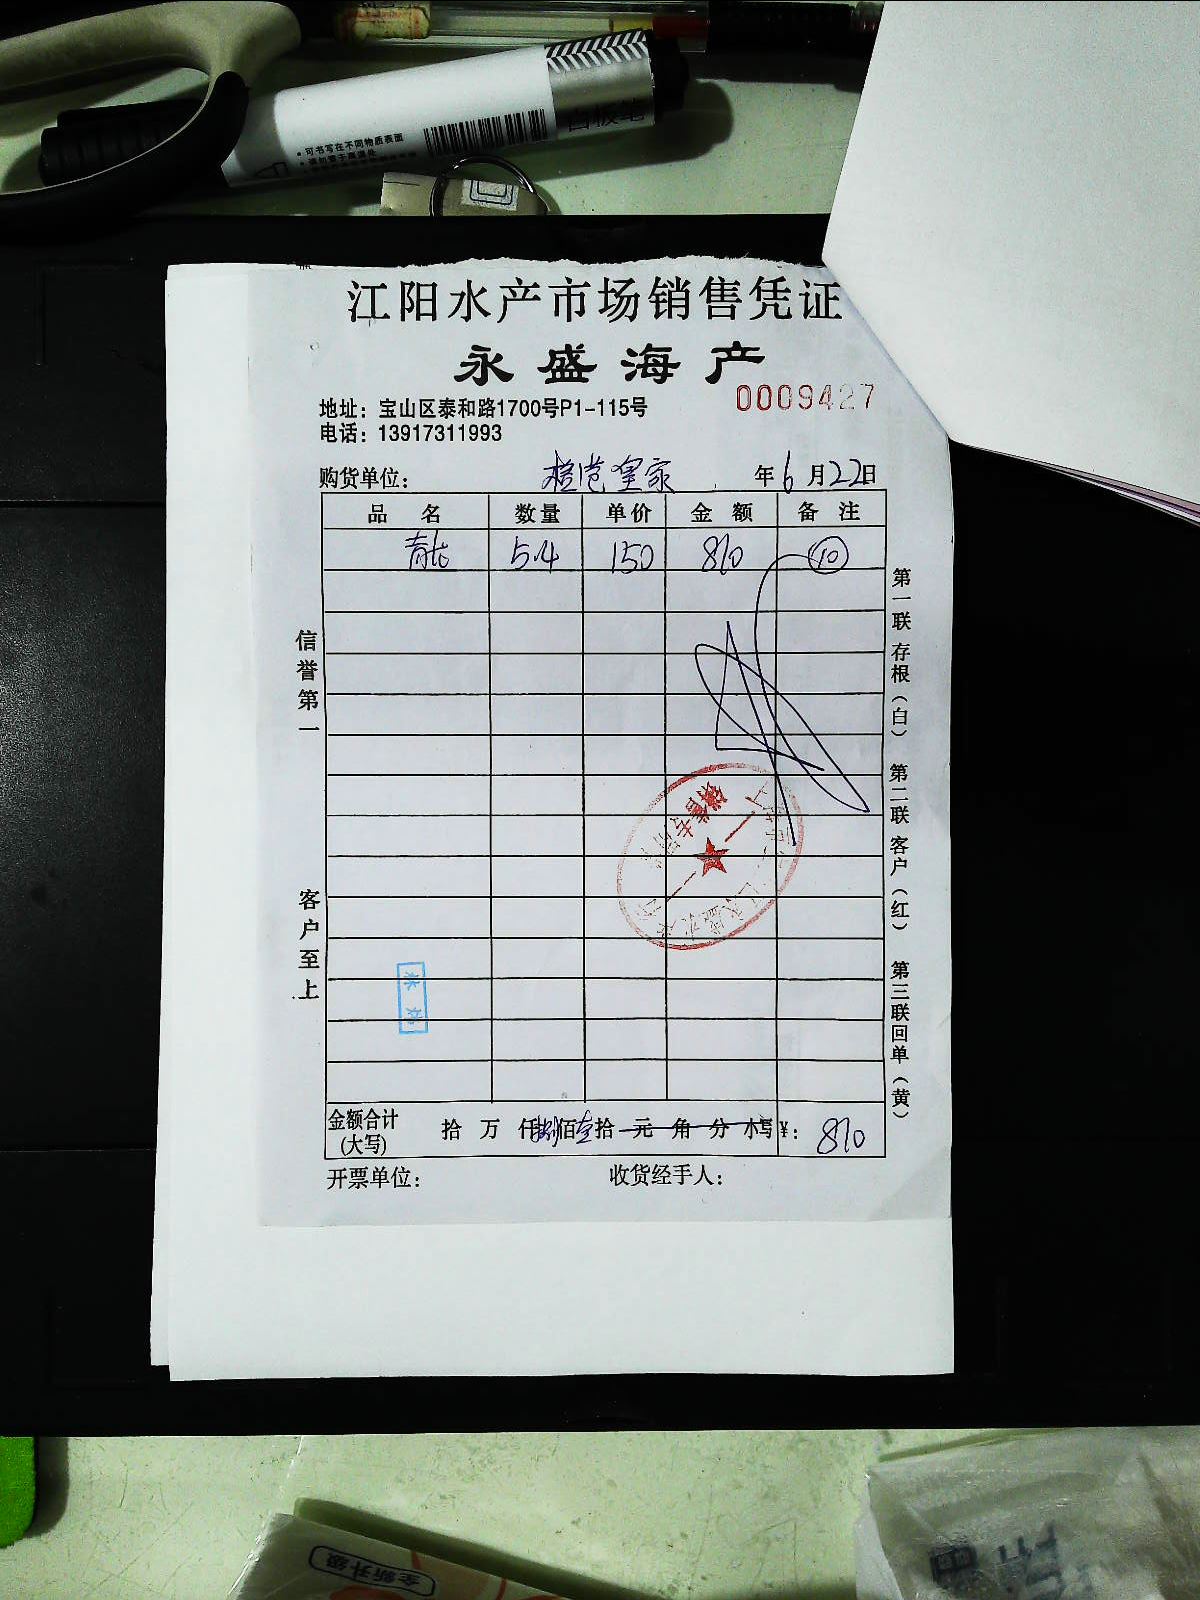 白板笔
• 可书写在不同物质表面
江阳水产市场销售凭证
永盛海产
0009427
地址：宝山区泰和路1700号P1-115号
电话：13917311993
购货单位： 皇家 年6月22日
品 名 数量 单价 金 额 备 注
5.4 150 810 10
信誉第一
客户至上
第一联 存根（白） 第二联 客户（红） 第三联 回单（黄）
销售专用章
金额合计
(大写)
拾 万 仟捌佰壹拾 元 角 分 小写¥： 810
开票单位： 收货经手人：
全新升级